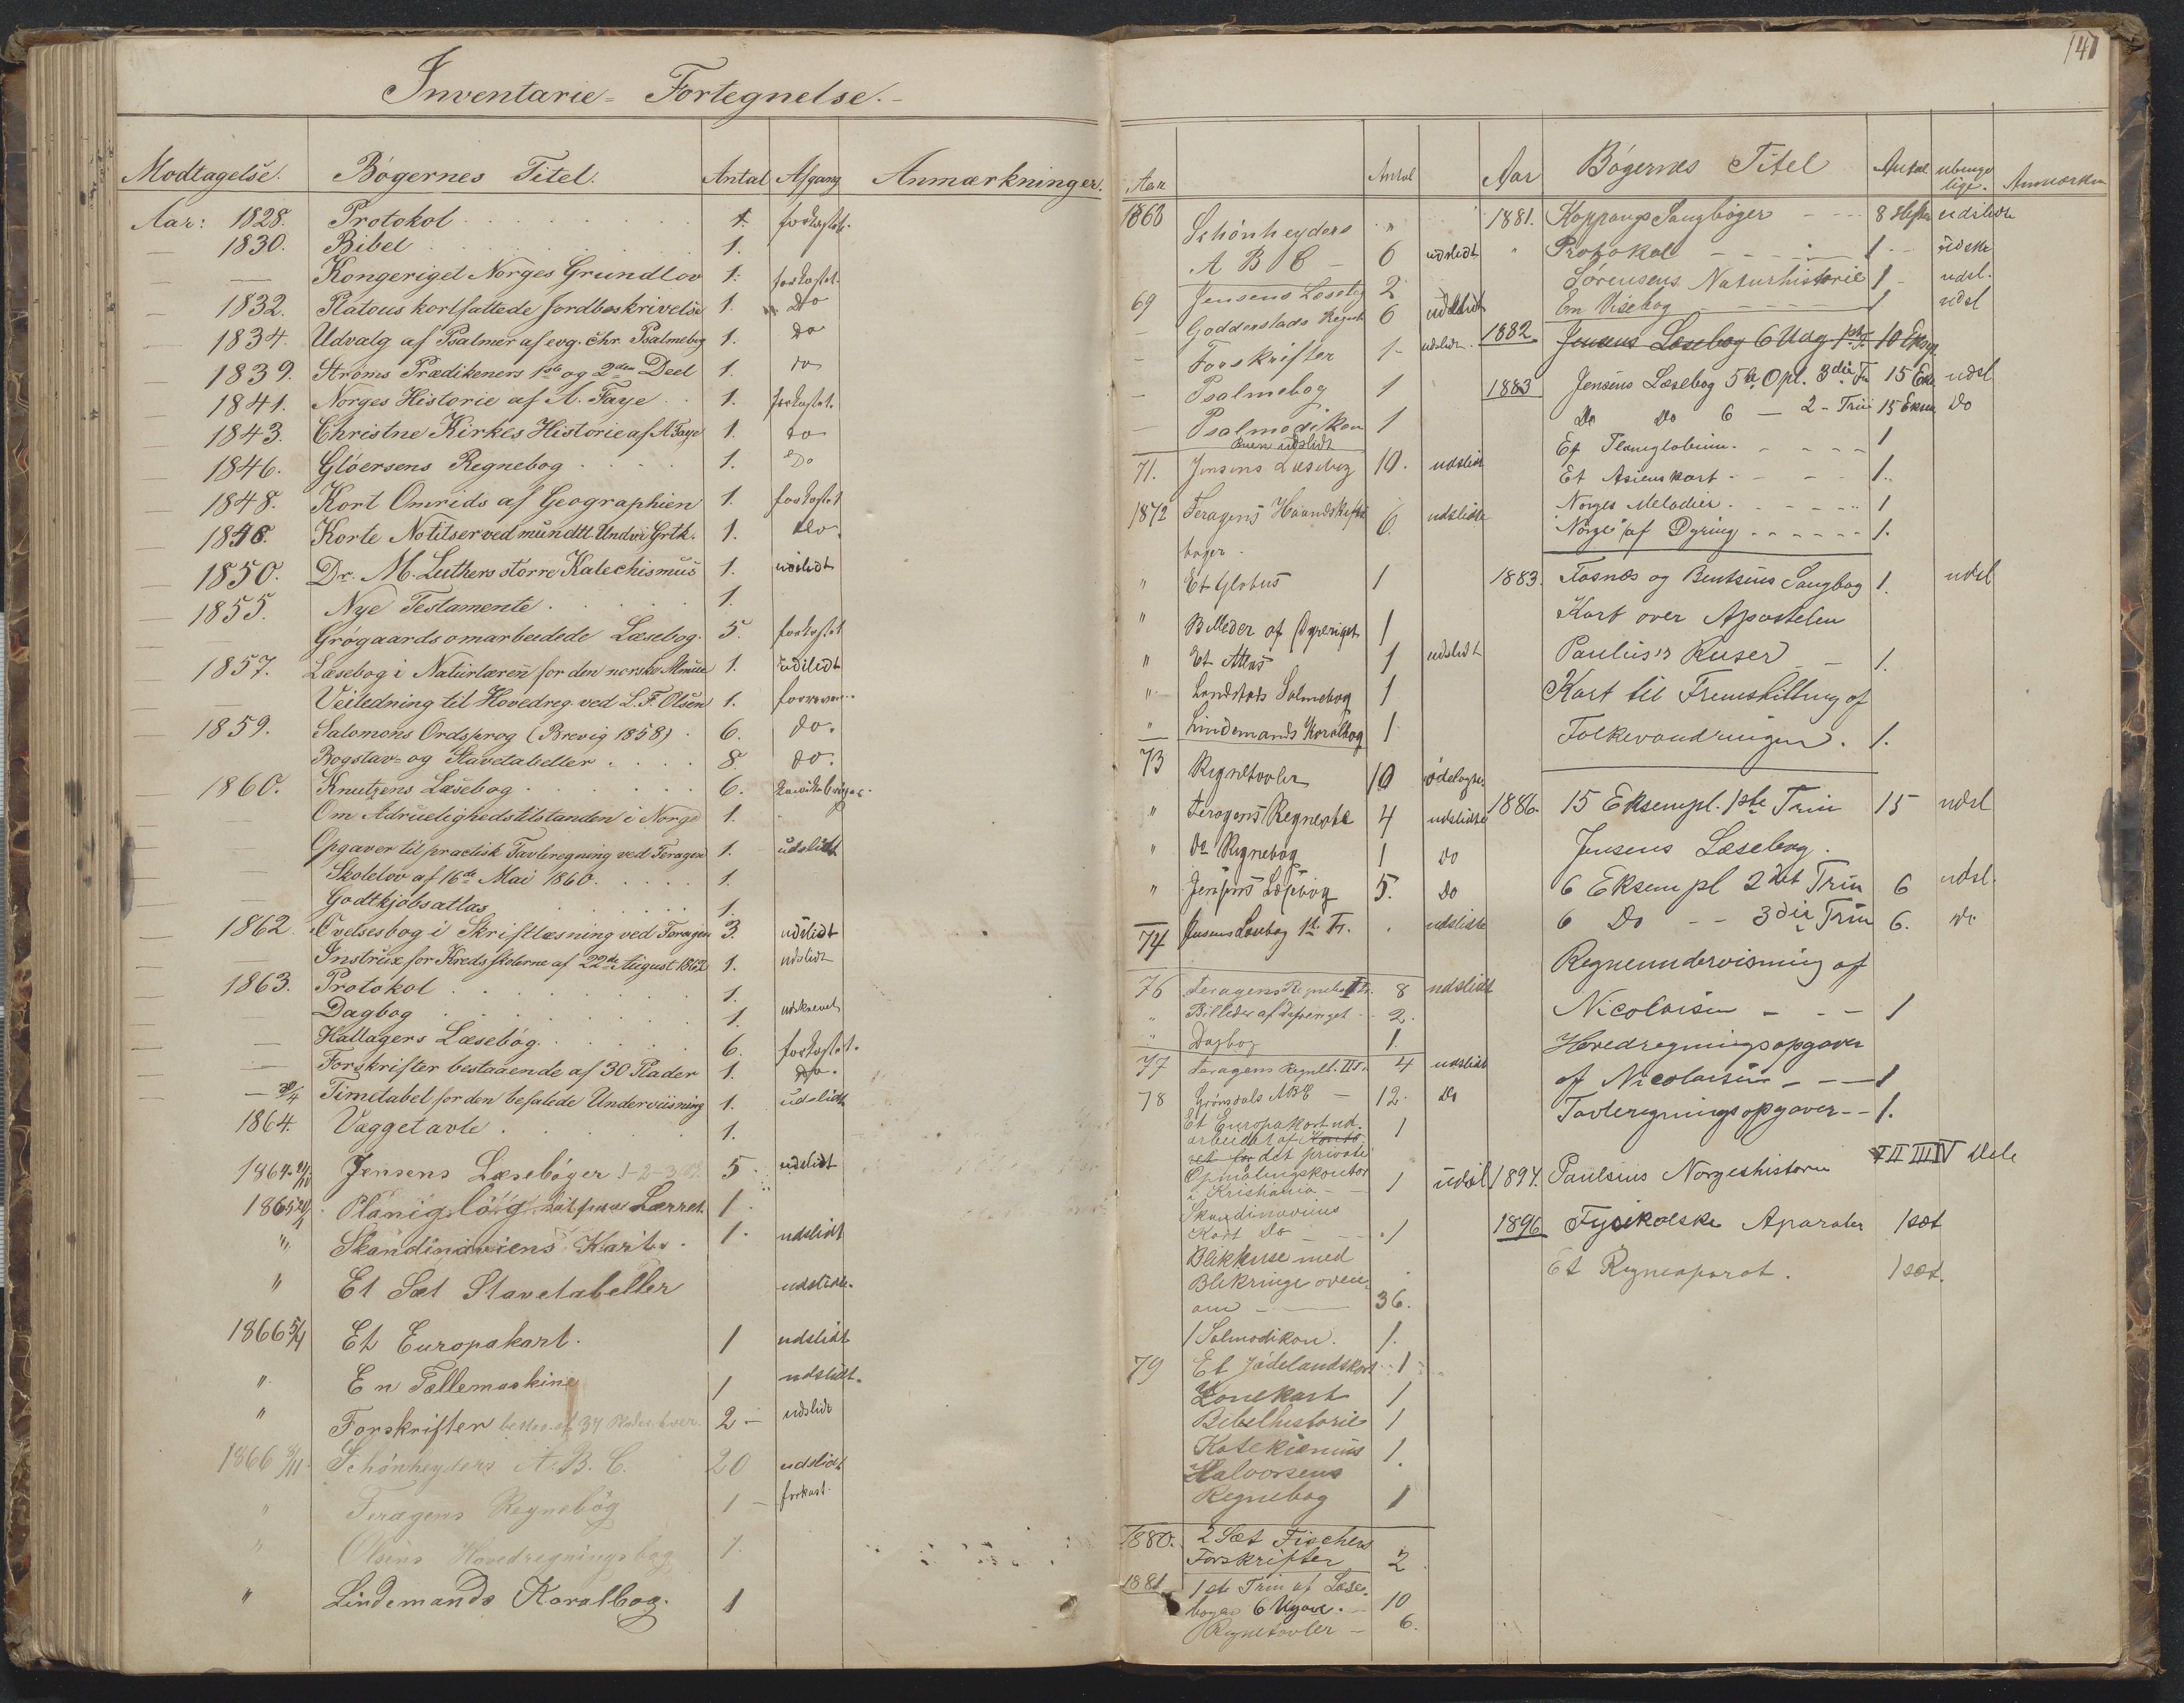 Inventarie-Fortegnelse.-
Modtagelse. Bøgernes Titel. Antal Afgang Anmærkninger.
Aar: 1828. Protokol 1. forkastet.
1830. Bibel 1.
— Kongeriget Norges Grundlov 1. forkastet.
1832. Platous kortfattede Jordbeskrivelse 1. do
1834. Udvalg af Psalmer af evg. chr. Psalmebog 1. do
1839. Strøms Prædikeners 1ste og 2den Deel 1. do
1841. Norges Historie af A. Faye 1. forkastet.
1843. Christne Kirkes Historie af A Faye 1. do
1846. Gløersens Regnebog 1. do
1848. Kort Omrids af Geographien 1. forkastet
1848. Korte Notitser ved mundtl. Undvi Grtk. 1. do.
1850. Dr. M. Luthers større Katechismus 1. udslidt
1855. Nye Testamente 1.
— Grøgaards omarbeidede Læsebog. 5. forkastet
1857. Læsebog i Naturlæren for den norske Almue 1. udslidt
— Veiledning til Hovedreg. ved L. F. Olsen 1.
1859. Salomons Ordsprog (Brevig 1858) 6. do.
Bogstav- og Stavetabeller 8. do.
1860. Knutzens Læsebog 6.
— Om Ædruelighedstilstanden i Norge 1.
— Opgaver til practisk Tavleregning ved Feragen 1. udslidt
— Skolelov af 16de Mai 1860. 1.
— Godtkjøbsatlas 1.
1862. Øvelsesbog i Skriftlæsning ved Feragen 3. udslidt
— Instrux for Kredsskolerne af 22de August 1862 1. udslidt
1863. Protokol 1.
— Dagbog 1. udskrevet
— Hallagers Læsebog. 6. forkastet.
— Forskrifter bestaaende af 30 Plader 1. do.
— 30/4 Timetabel for den befalede Underviisning 1. udslidt
1864. Væggetavle 1.
1864 Jensens Læsebøger 1-2-3 5 udslidt
1865 Planiglob paa Lærret. 1
" Skandinaviens Kart. 1. udslidt
" Et Sæt Stavetabeller udslidt.
1866 5/4 Et Europakart. 1 udslidt
" En Tællemaskine 1 udslidt.
" Forskrifter 2 — udslidt
1866 Schønheyders A. B. C. 20 udslidt
" Feragens Regnebog 1 — forkast.
" Olsens Hovedregningsbog 1.
" Lindemands Koralbog. 1
141
Aar Antal
1868 Schønheyders "
A B C — 6 udslidt
69 Jensens Læsebog 2
— Goddenstads Regneb 6 udslidt
— Forskrifter 1- udslidt.
— Psalmebog 1
— Psalmodikon 1
Buen udslidt
71. Jensens Læsebog 10. udslidt
1872 Feragens Haandskrifts
bøger. 6. udslidte
" Et Globus 1
" Billeder af Dyreriget 1
" Et Atlas 1 udslidt
" Landstads Salmebog 1
" Lindemands Koralbog 1
73 Regnetavler 10 ødelagte
" Feragens Regnebog 4 udslidte
" Do Regnebog 1 do
" Jensens Læsebog 5. Do
74 Jensens Læsebog 1ste Tr. udslidte
76 Feragens Regnebog I 8 udslidt
" Billeder af Dyreriget 2.
" Dagbog 1.
77 Feragens Regneb. II 4 udslidt
78 Grønsdals ABC — 12. Do
Et Europakart ud-
arbeidet af
det private
Opmålingskontor
i Kristiania — 1 udsl
Skandinaviens
Kart Do 1
Blækhuse med
Blikringe oven
om — 36.
1 Salmodikon. 1.
79 Et Jødelandskort 1
Zonekart 1
Bibelhistorie 1
Katekismus 1.
Halvorsens
Regnebog 1
1880. 2 Sæt Fischers
Forskrifter 2
1881 1ste Trin af Læse-
bogen 6 Udgave. — 10
Regnetavler — 6.
Aar Bøgernes Titel Antal Anmærkn
1881. Koppangs Sangbøger 8 Hefter udslidte
" Protokol 1 - udskr
Sørensens Naturhistorie 1 udsl.
En Visebog 1 udsl
1882. Jensens Læsebog 6 Udg 1ste Tr 10 Expl
1883 Jensens Læsebog 5te Opl. 3die Tr 15 Eks udsl
Do Do 6 — 2 - Trin 15 Eksm Do
Et Planiglobium. 1
Et Asienskart 1.
Norges Melodier. 1
"Norge" af Dyring 1.
1883. Fosnæs og Bentsens Sangbog 1. udsl
Kart over Apostelen
Paulus's Reiser 1.
Kart til Fremstilling af
Folkevandringen. 1.
1886. 15 Eksempl. 1ste Trin 15 udsl
Jensens Læsebog.
6 Eksempl 2det Trin 6 udsl.
6 Do — 3die Trin 6. do
Regneundervisning af
Nicolaisen — 1
Hovedregningsopgaver
af Nicolaisen — 1
Tavleregningsopgaver 1.
1894. Paulsens Norgeshistorie I II III IV Dele
1896 Fysikalske Aparater 1 sæt
Et Regneaparat. 1 sæt.